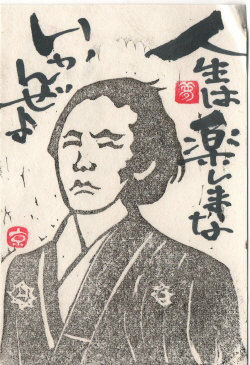 人生は楽しまな
夢
いかんぜよ
京